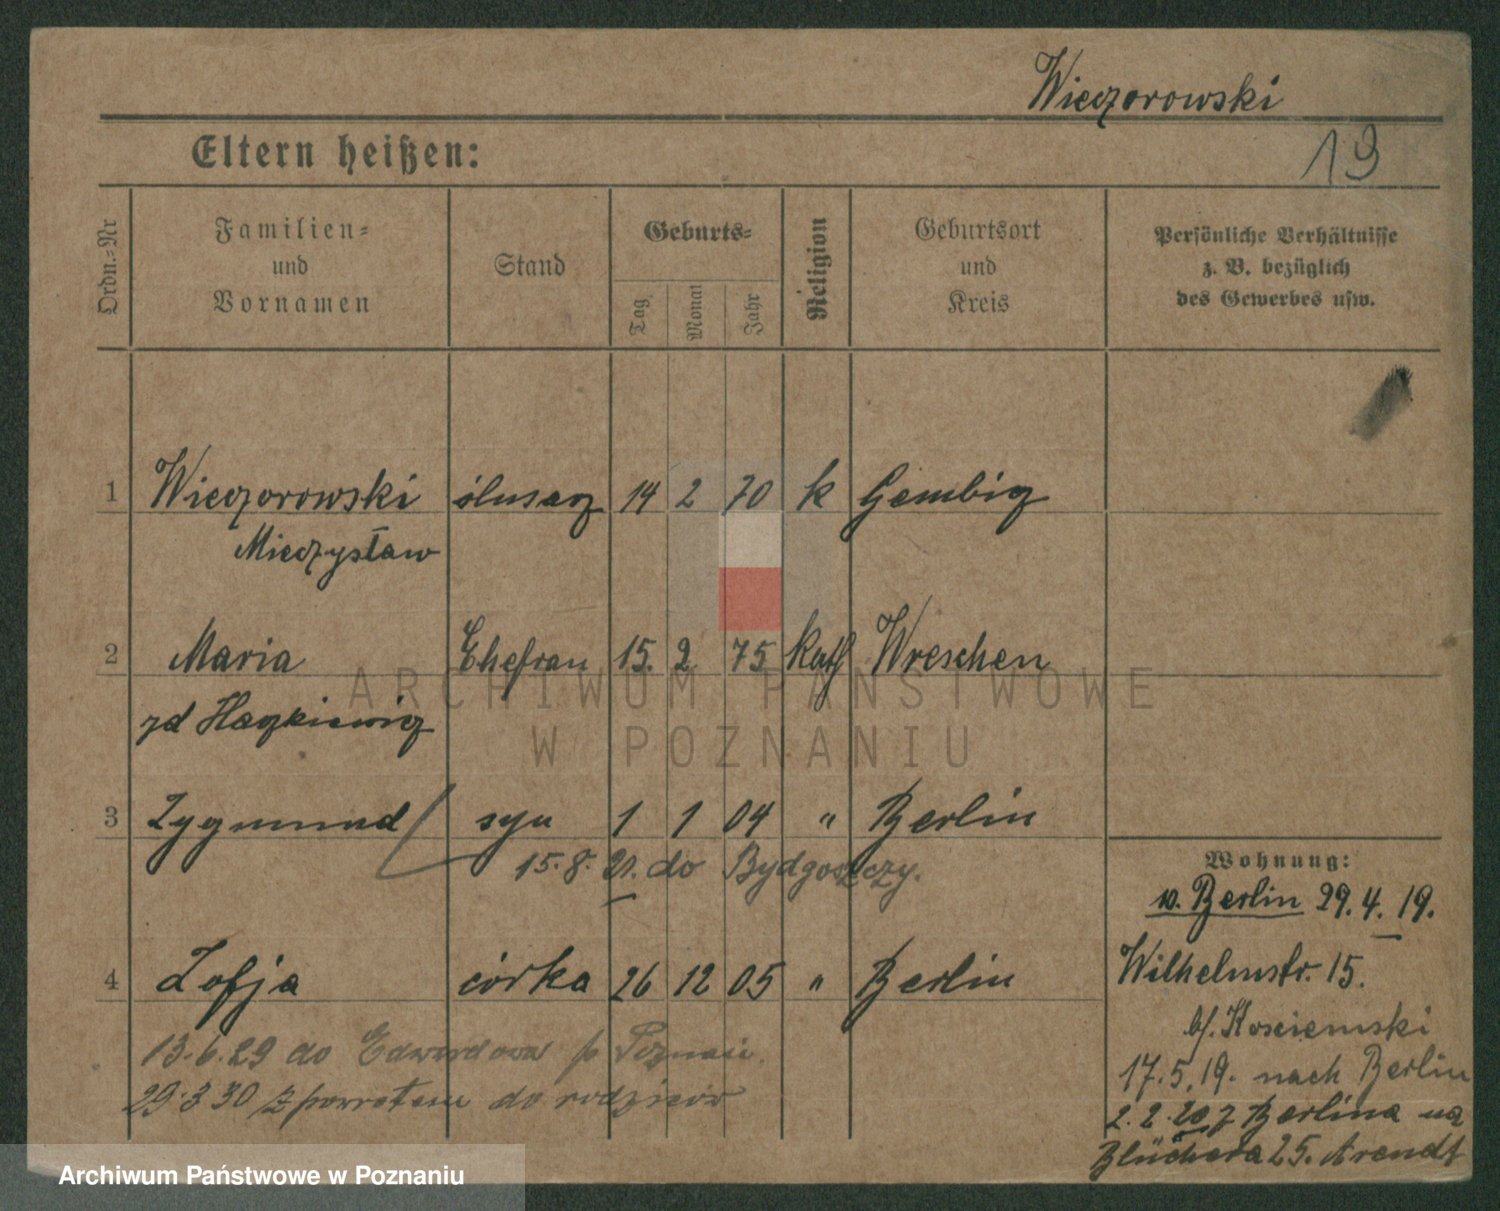 Wieczorowski
19
Eltern heißen:
Ordn.-Nr
Familien-
und
Vornamen
Stand
Geburts-
Tag
Monat
Jahr
Religion
Geburtsort
und
Kreis
Persönliche Verhältnisse
z. B. bezüglich
des Gewerbes usw.
1 Wieczorowski ślusarz 14 2 70 k Gembiz
Mieczysław
2 Maria Ehefrau 15. 2 75 Kath Wreschen
zd
3 Zygmund syn 1 1 04 " Berlin
15.8.21. do Bydgoszczy.
4 Zofja córka 26 12 05 " Berlin
13.6.29 do Edwardowa p Poznań.
29.3 30 z powrotem do rodziców
Wohnung:
v. Berlin 29.4.19.
Wilhelmstr. 15.
b/. Kosciemski
17.5.19. nach Berlin
2.2.20 z Berlina na
Blüchera 25. Arendt
ARCHIWUM PAŃSTWOWE
W POZNANIU
Archiwum Państwowe w Poznaniu